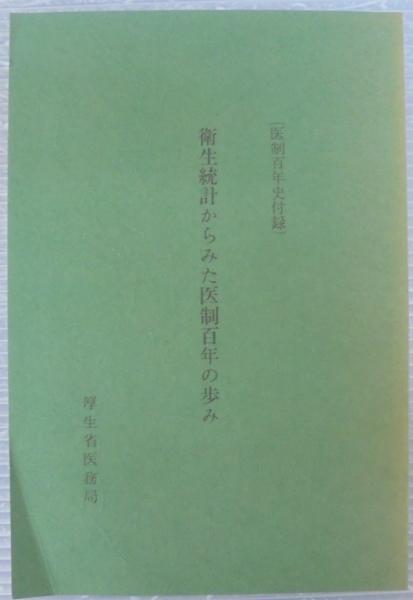 ［医制百年史付録］
衛生統計からみた医制百年の歩み
厚生省医務局